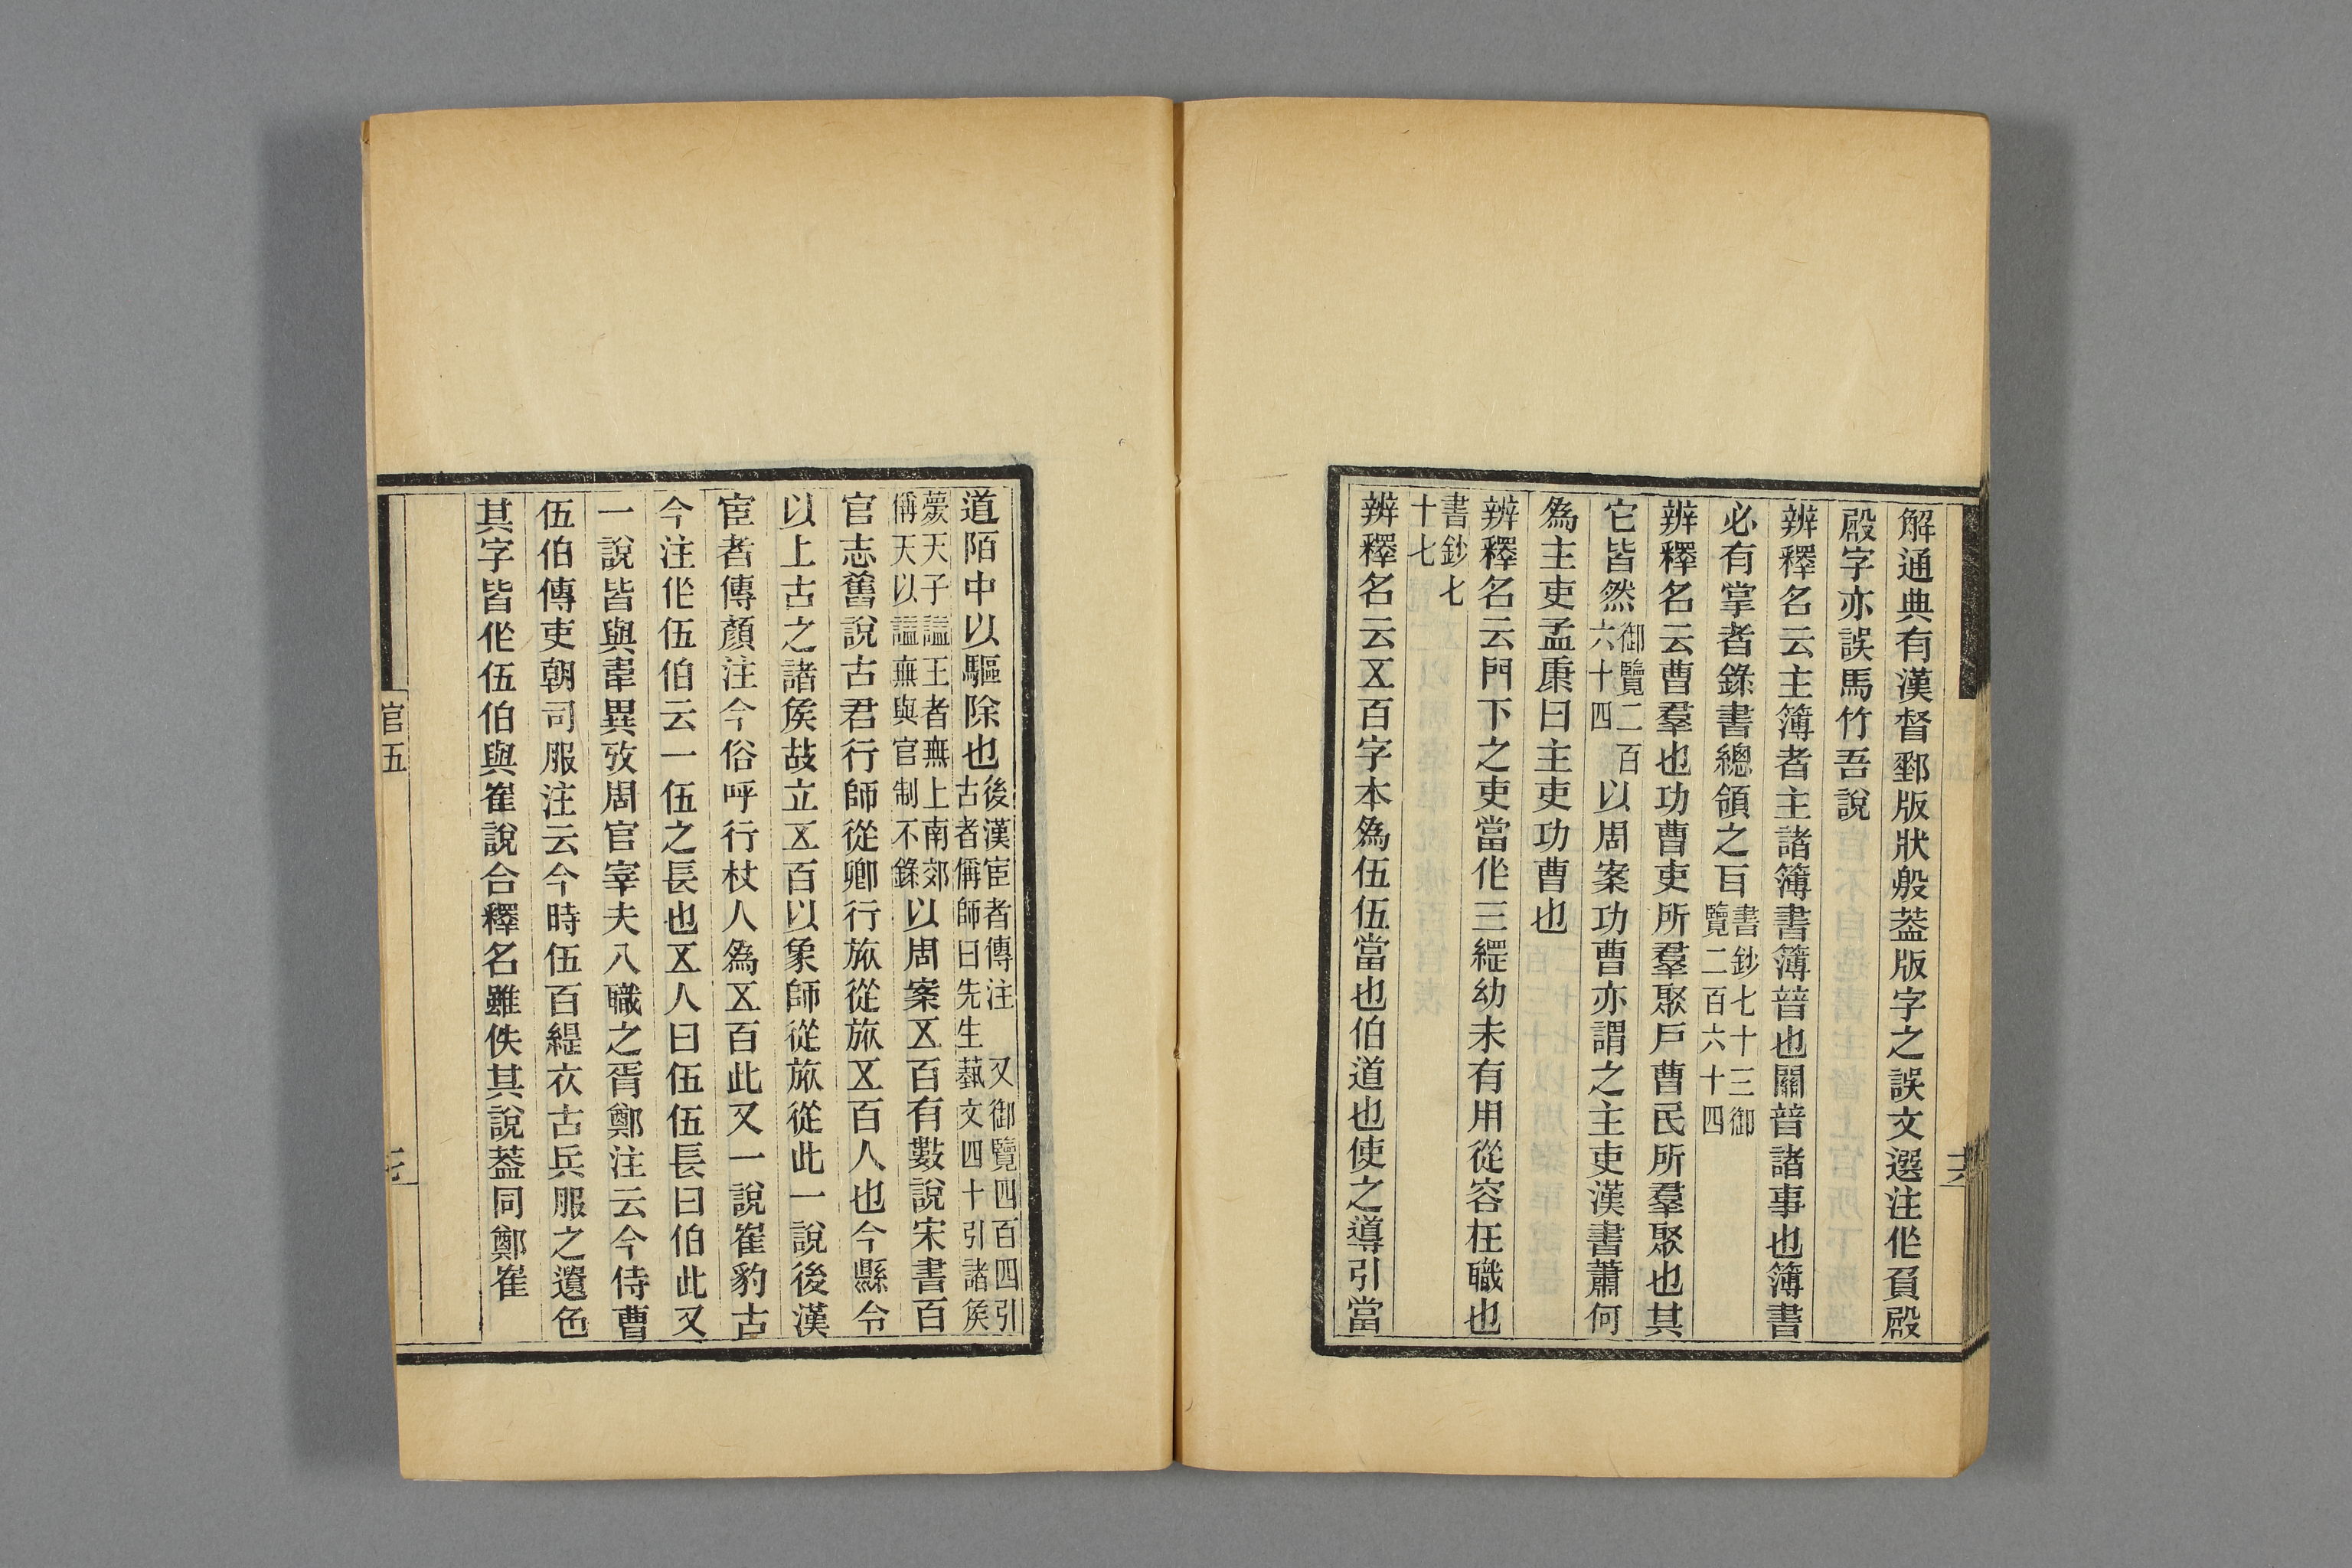 解通典有漢督郵版狀殿葢版字之誤文選注作負殿
殿字亦誤馬竹吾說
辨釋名云主簿者主諸簿書簿簪也關簪諸事也簿書
必有掌者錄書總領之百書鈔七十三御覽二百六十四
辨釋名云曹羣也功曹吏所羣聚戶曹民所羣聚也其
它皆然御覽二百六十四以周案功曹亦謂之主吏漢書蕭何
爲主吏孟康曰主吏功曹也
辨釋名云門下之吏當作三緹幼未有用從容在職也
書鈔七十七
辨釋名云五百字本爲伍伍當也伯道也使之導引當
道陌中以驅除也後漢宦者傳注 又御覽四百四引古者稱師曰先生 藝文四十引諸矦
薨天子諡王者無上南郊稱天以諡無與官制不錄以周案五百有數說宋書百
官志舊說古君行師從卿行旅從旅五百人也今縣令
以上古之諸矦故立五百以象師從旅從此一說後漢
宦者傳顏注今俗呼行杖人爲五百此又一說崔豹古
今注作伍伯云一伍之長也五人曰伍伍長曰伯此又
一說皆與韋異攷周官宰夫八職之胥鄭注云今侍曹
伍伯傳吏朝司服注云今時伍百緹衣古兵服之遺色
其字皆作伍伯與崔說合釋名雖佚其說葢同鄭崔
官五